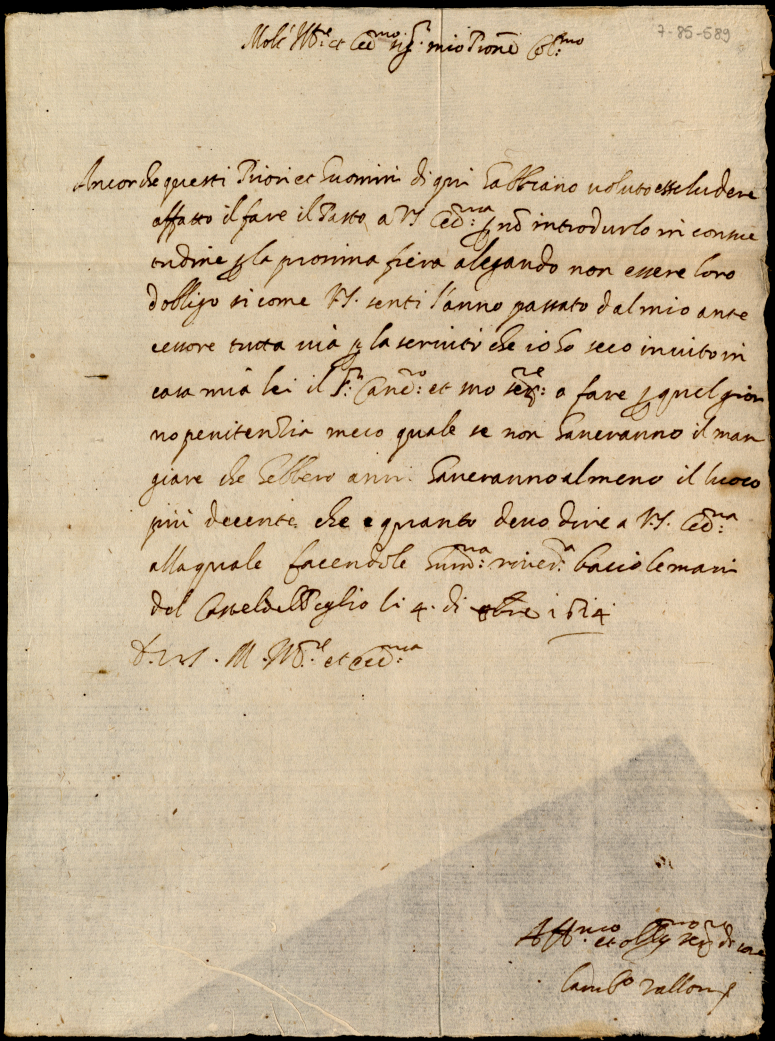 7-85-589
Molt' Ill:re et Ecc:mo sig:r mio Prone Col:mo
Ancor che questi Priori et huomini di qui habbiano voluto escludere
affatto il fare il Pasto a VS Ecc:ma p nō introdurlo in consue
tudine p la prossima fiera alegando non essere loro
d'obligo si come VS. senti l'anno passato dal mio ante
cessore tutta via p la servitù che io ho seco invito in
casa mia lei il S:r Canc:ro et suo a fare p quel gior
no penitenzia meco quale se non haveranno il man
giare che hebbero haveranno almeno il luoco
più decente. che è quanto devo dire a VS. Ecc:ma
alla quale facendole hum:ma river:a bacio le mani
dal Castel del li 4. di 8bre 1614
D. VS. M. Ill:re et Ecc:ma
Aff:mo et obl:mo ser:re di core